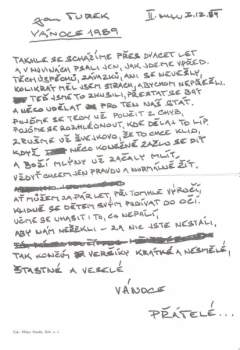 Jan TUREK
VÁNOCE 1989
TAKHLE SE SCHÁZÍME PŘES DVACET LET
A V NOVINÁCH PSALI JEN, JAK JDEME VPŘED.
TĚCH ÚSPĚCHŮ, ZÁVAZKŮ, ANI SE NEVEŠLY,
KOLIKRÁT MĚL JSEM STRACH, ABYCHOM NEPŘEŠLI.
TEĎ JSME TO ZKUSILI, PŘESTAT SE BÁT
A NĚCO UDĚLAT PRO TEN NÁŠ STÁT.
POJĎME SE TEĎ UČIT Z CHYB,
POJĎME SE ROZHLÉDNOUT, KDE DĚLAJ TO LÍP.
ZRUŠME UŽ ŽVEJKOVO, ŽE TO CHCE KLID,
KDYŽ NĚCO KONEČNĚ ZAČLO SE DÍT
A BOŽÍ MLÝNY UŽ ZAČALY MLÍT.
VŽDYŤ CHCEM JEN PRAVDU A NORMÁLNĚ ŽÍT.
AŤ MŮŽEM ZA PÁR LET, PŘI TOMHLE VÝROČÍ,
KLIDNĚ SE DĚTEM SVÝM PODÍVAT DO OČÍ.
UČME SE UHASIT I TO, CO NEPÁLÍ,
ABY NÁM NEŘEKLI – ZA NIC JSTE NESTÁLI.
TAK KONČÍM VERŠÍKY KRÁTKÉ A NESMĚLÉ,
ŠŤASTNÉ A VESELÉ
VÁNOCE
PŘÁTELÉ...